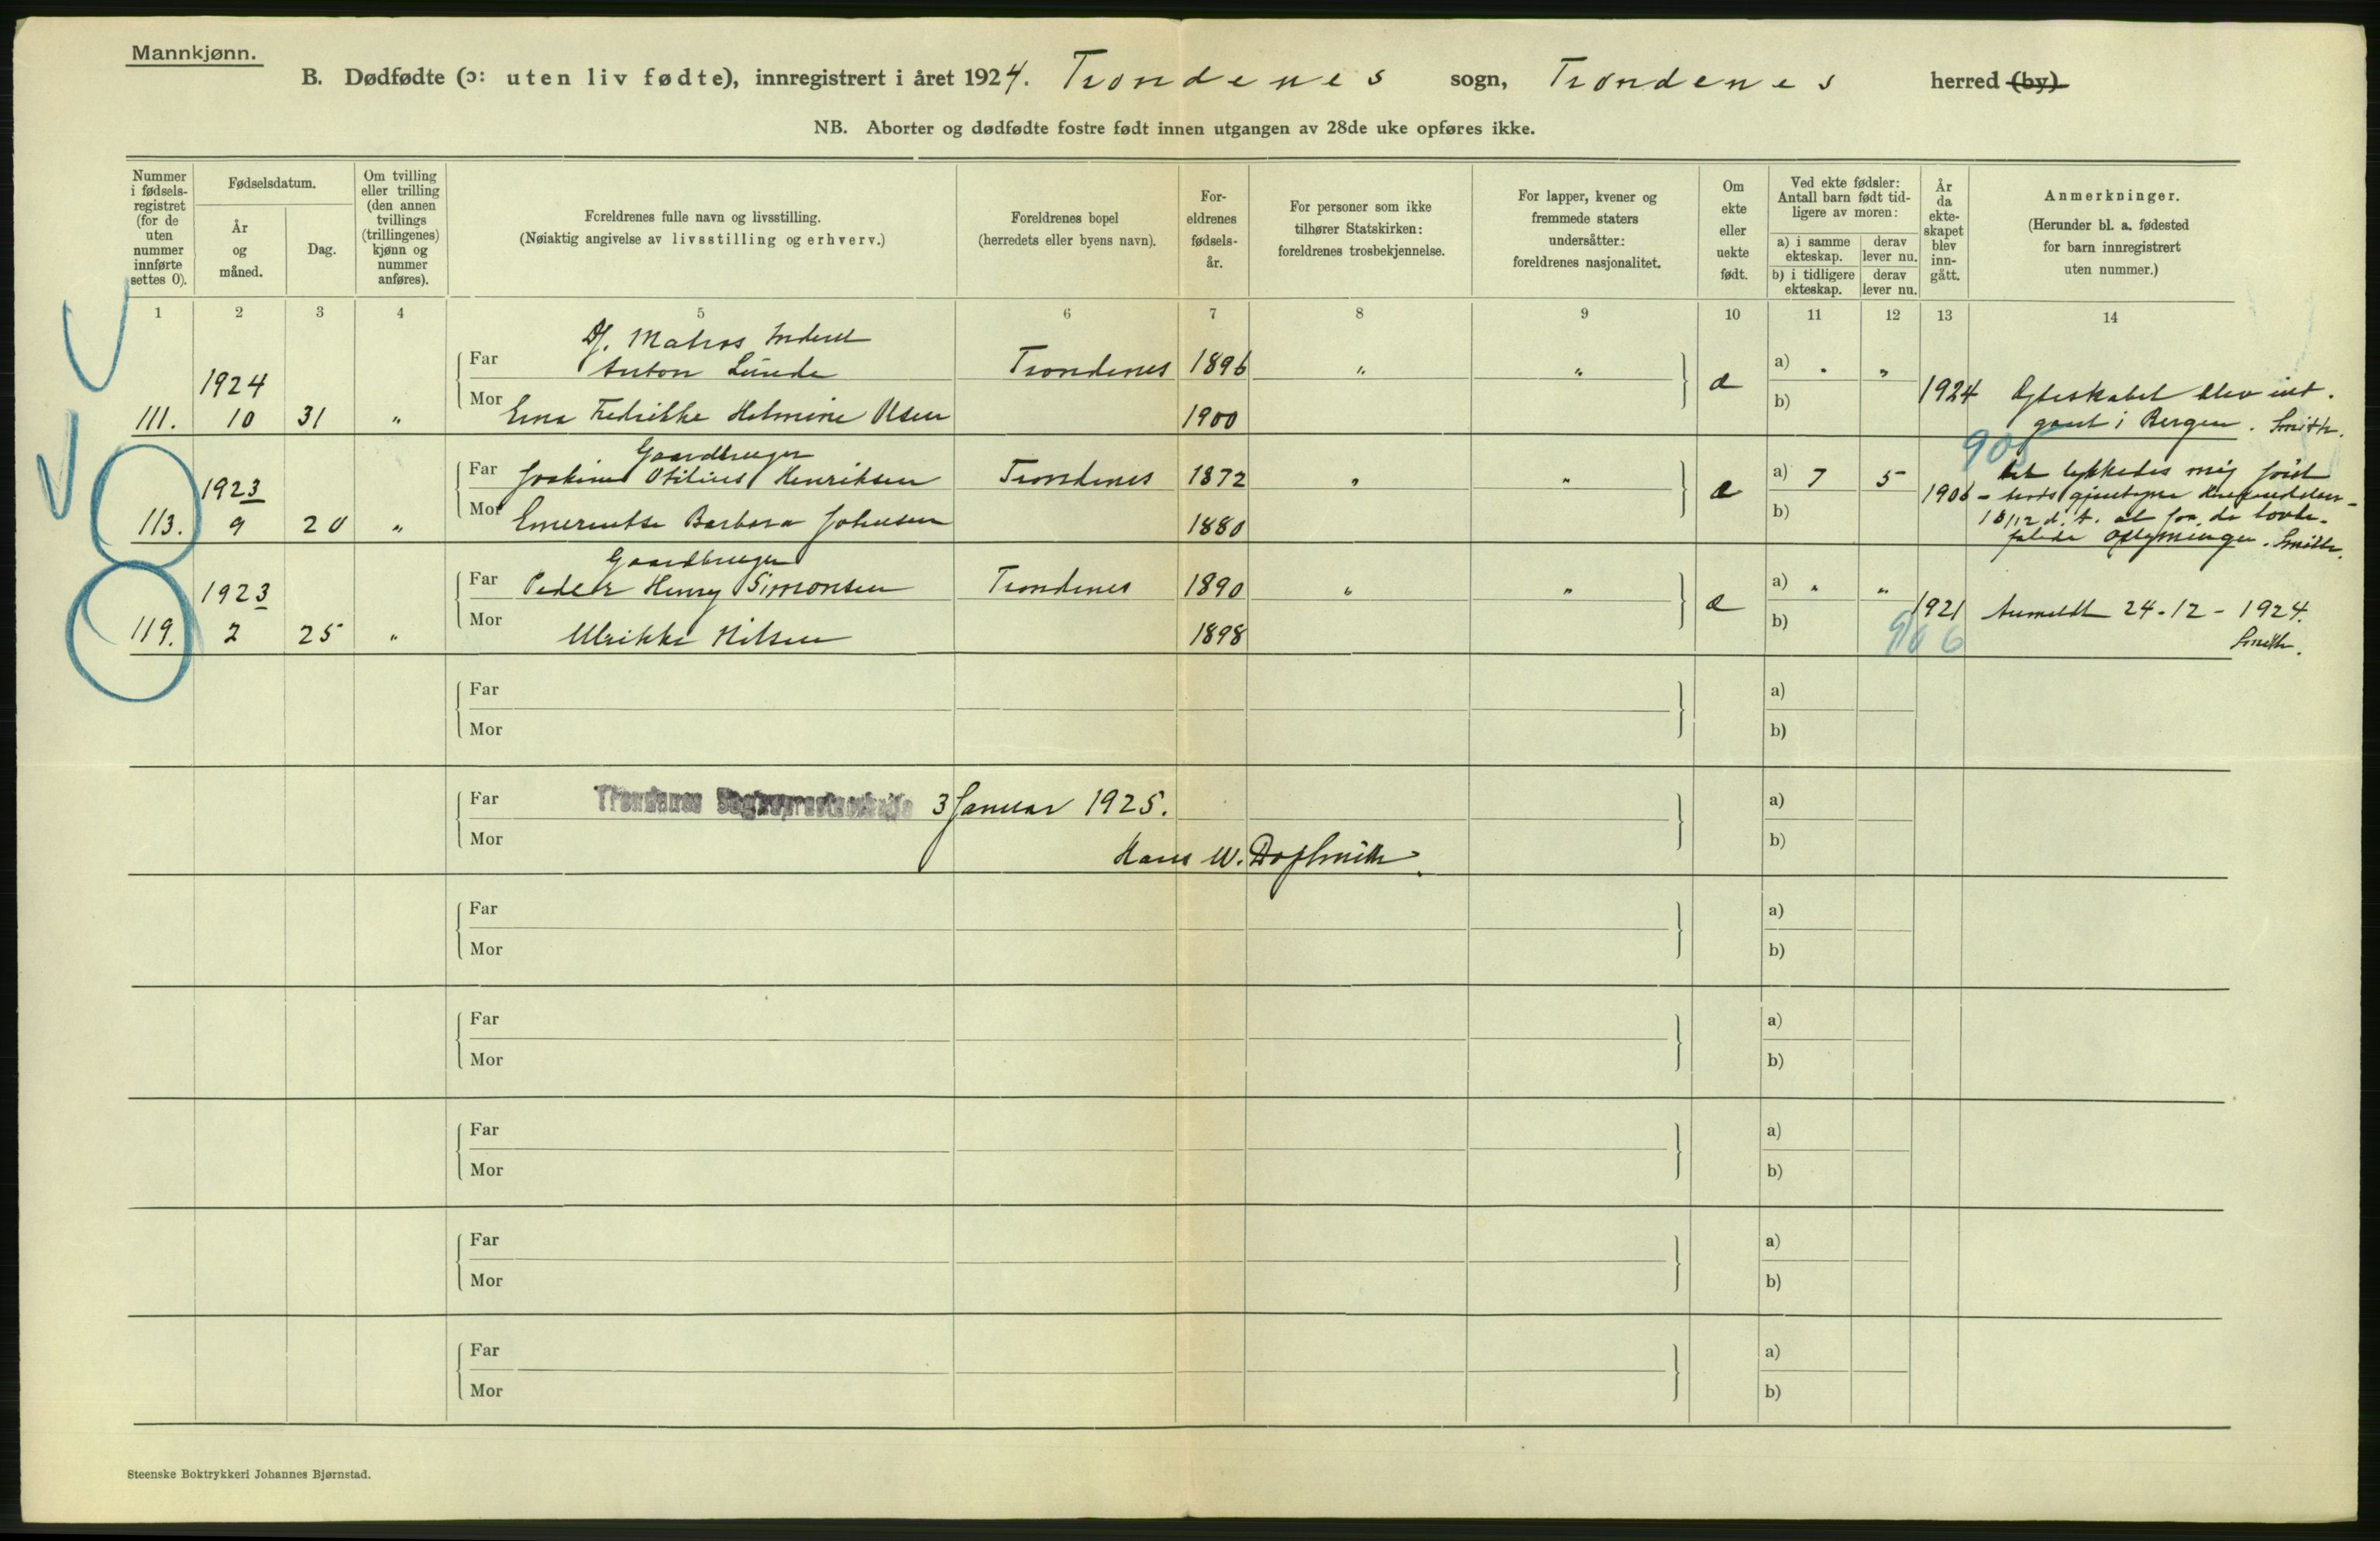 Mannkjønn.
B. Dødfødte (ɔ: uten liv fødte), innregistrert i året 1924. Trondenes sogn, Trondenes herred (by)
NB. Aborter og dødfødte fostre født innen utgangen av 28de uke opføres ikke.
Nummer i fødsels-registret (for de uten nummer innførte settes 0).
Fødselsdatum.
År og måned.
Dag.
Om tvilling eller trilling (den annen tvillings (trillingenes) kjønn og nummer anføres).
Foreldrenes fulle navn og livsstilling.
(Nøiaktig angivelse av livsstilling og erhverv.)
Foreldrenes bopel
(herredets eller byens navn).
For-eldrenes fødsels-år.
For personer som ikke tilhører Statskirken: foreldrenes trosbekjennelse.
For lapper, kvener og fremmede staters undersåtter: foreldrenes nasjonalitet.
Om ekte eller uekte født.
Ved ekte fødsler: Antall barn født tid-ligere av moren:
a) i samme ekteskap. derav lever nu.
b) i tidligere ekteskap. derav lever nu.
År da ekte-skapet blev inn-gått.
Anmerkninger.
(Herunder bl. a. fødested for barn innregistrert uten nummer.)
1 2 3 4 5 6 7 8 9 10 11 12 13 14
Matros
Far Anton Lunde Trondenes 1896 " " a) " "
1924 e 1924 Egteskabet blev int.
111. 10 31 " Mor Fedrikke Helmine Olsen 1900 b) gaat i Bergen. Smith.
Gaardbruger 905
Far Joakim Otilius Henriksen Trondenes 1872 " " a) 7 5 Det lykkedes mig først
1923 e 1906 - trods gjentagne
113. 9 20 " Mor Emerentse Barbara Johnsen 1880 b) 18/12 d. A. at faa de lovbe-
falede Oplysninger. Smith.
Gaardbruger
Far Peder Henry Simonsen Trondenes 1890 " " a) " "
1923 e 1921 Anmeldt 24-12-1924.
119. 2 25 " Mor Ulrikke Nilsen 1898 b) 906 Smith.
Far a)
Mor b)
Far Trondenes Sogneprestembede 3 Januar 1925. a)
Mor Hans W. b)
Far a)
Mor b)
Far a)
Mor b)
Far a)
Mor b)
Far a)
Mor b)
Far a)
Mor b)
Steenske Boktrykkeri Johannes Bjørnstad.